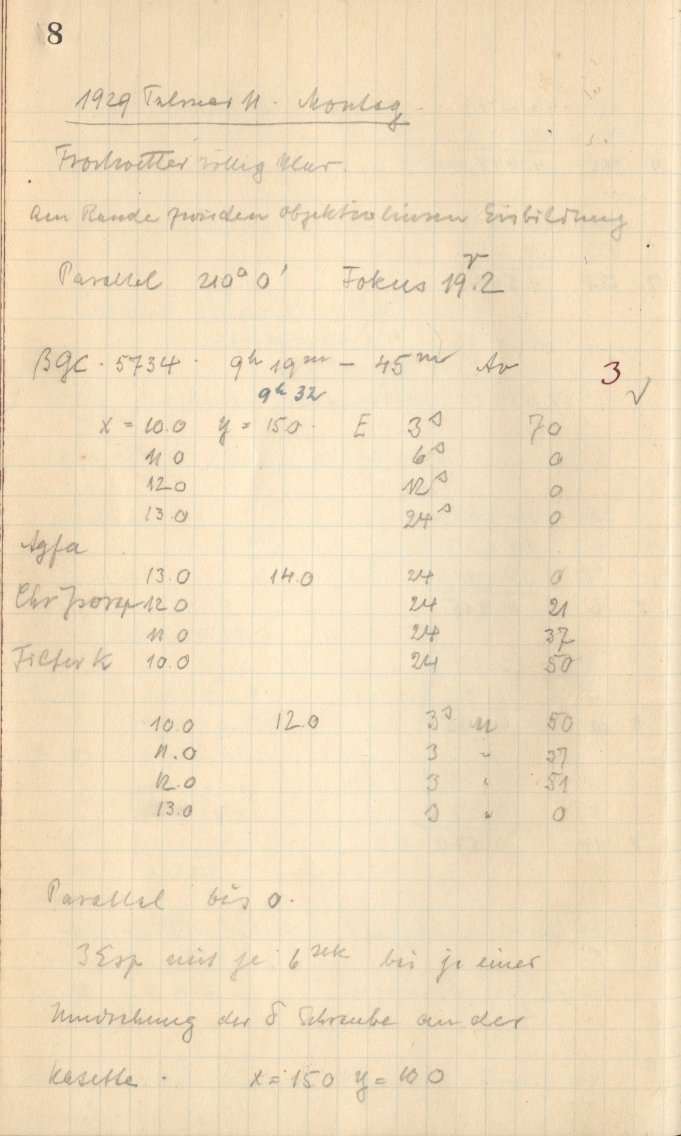 8
1929 Februar 11. Montag.
Frostwetter völlig klar.
Am Rande zwischen Objektivlinsen Eisbildung
Parallel 210° 0' Fokus 19.2
βGC. 5734. 9h 19m – 45m Av 3 √
9h 32
x = 10.0 y = 15.0. E 3s 70
11 0 6s 0
12 0 12s 0
13.0 24s 0
Agfa
13.0 14.0 24 0
12 0 24 21
11 0 24 37
Filter K 10.0 24 50
10.0 12.0 3s M 50
11.0 3 " 37
12.0 3 " 51
13.0 3 " 0
Parallel bis 0.
3 Exp mit je 6 sek bei je einer
Umdrehung der δ Schraube an der
Kasette. x = 15 0 y = 10 0